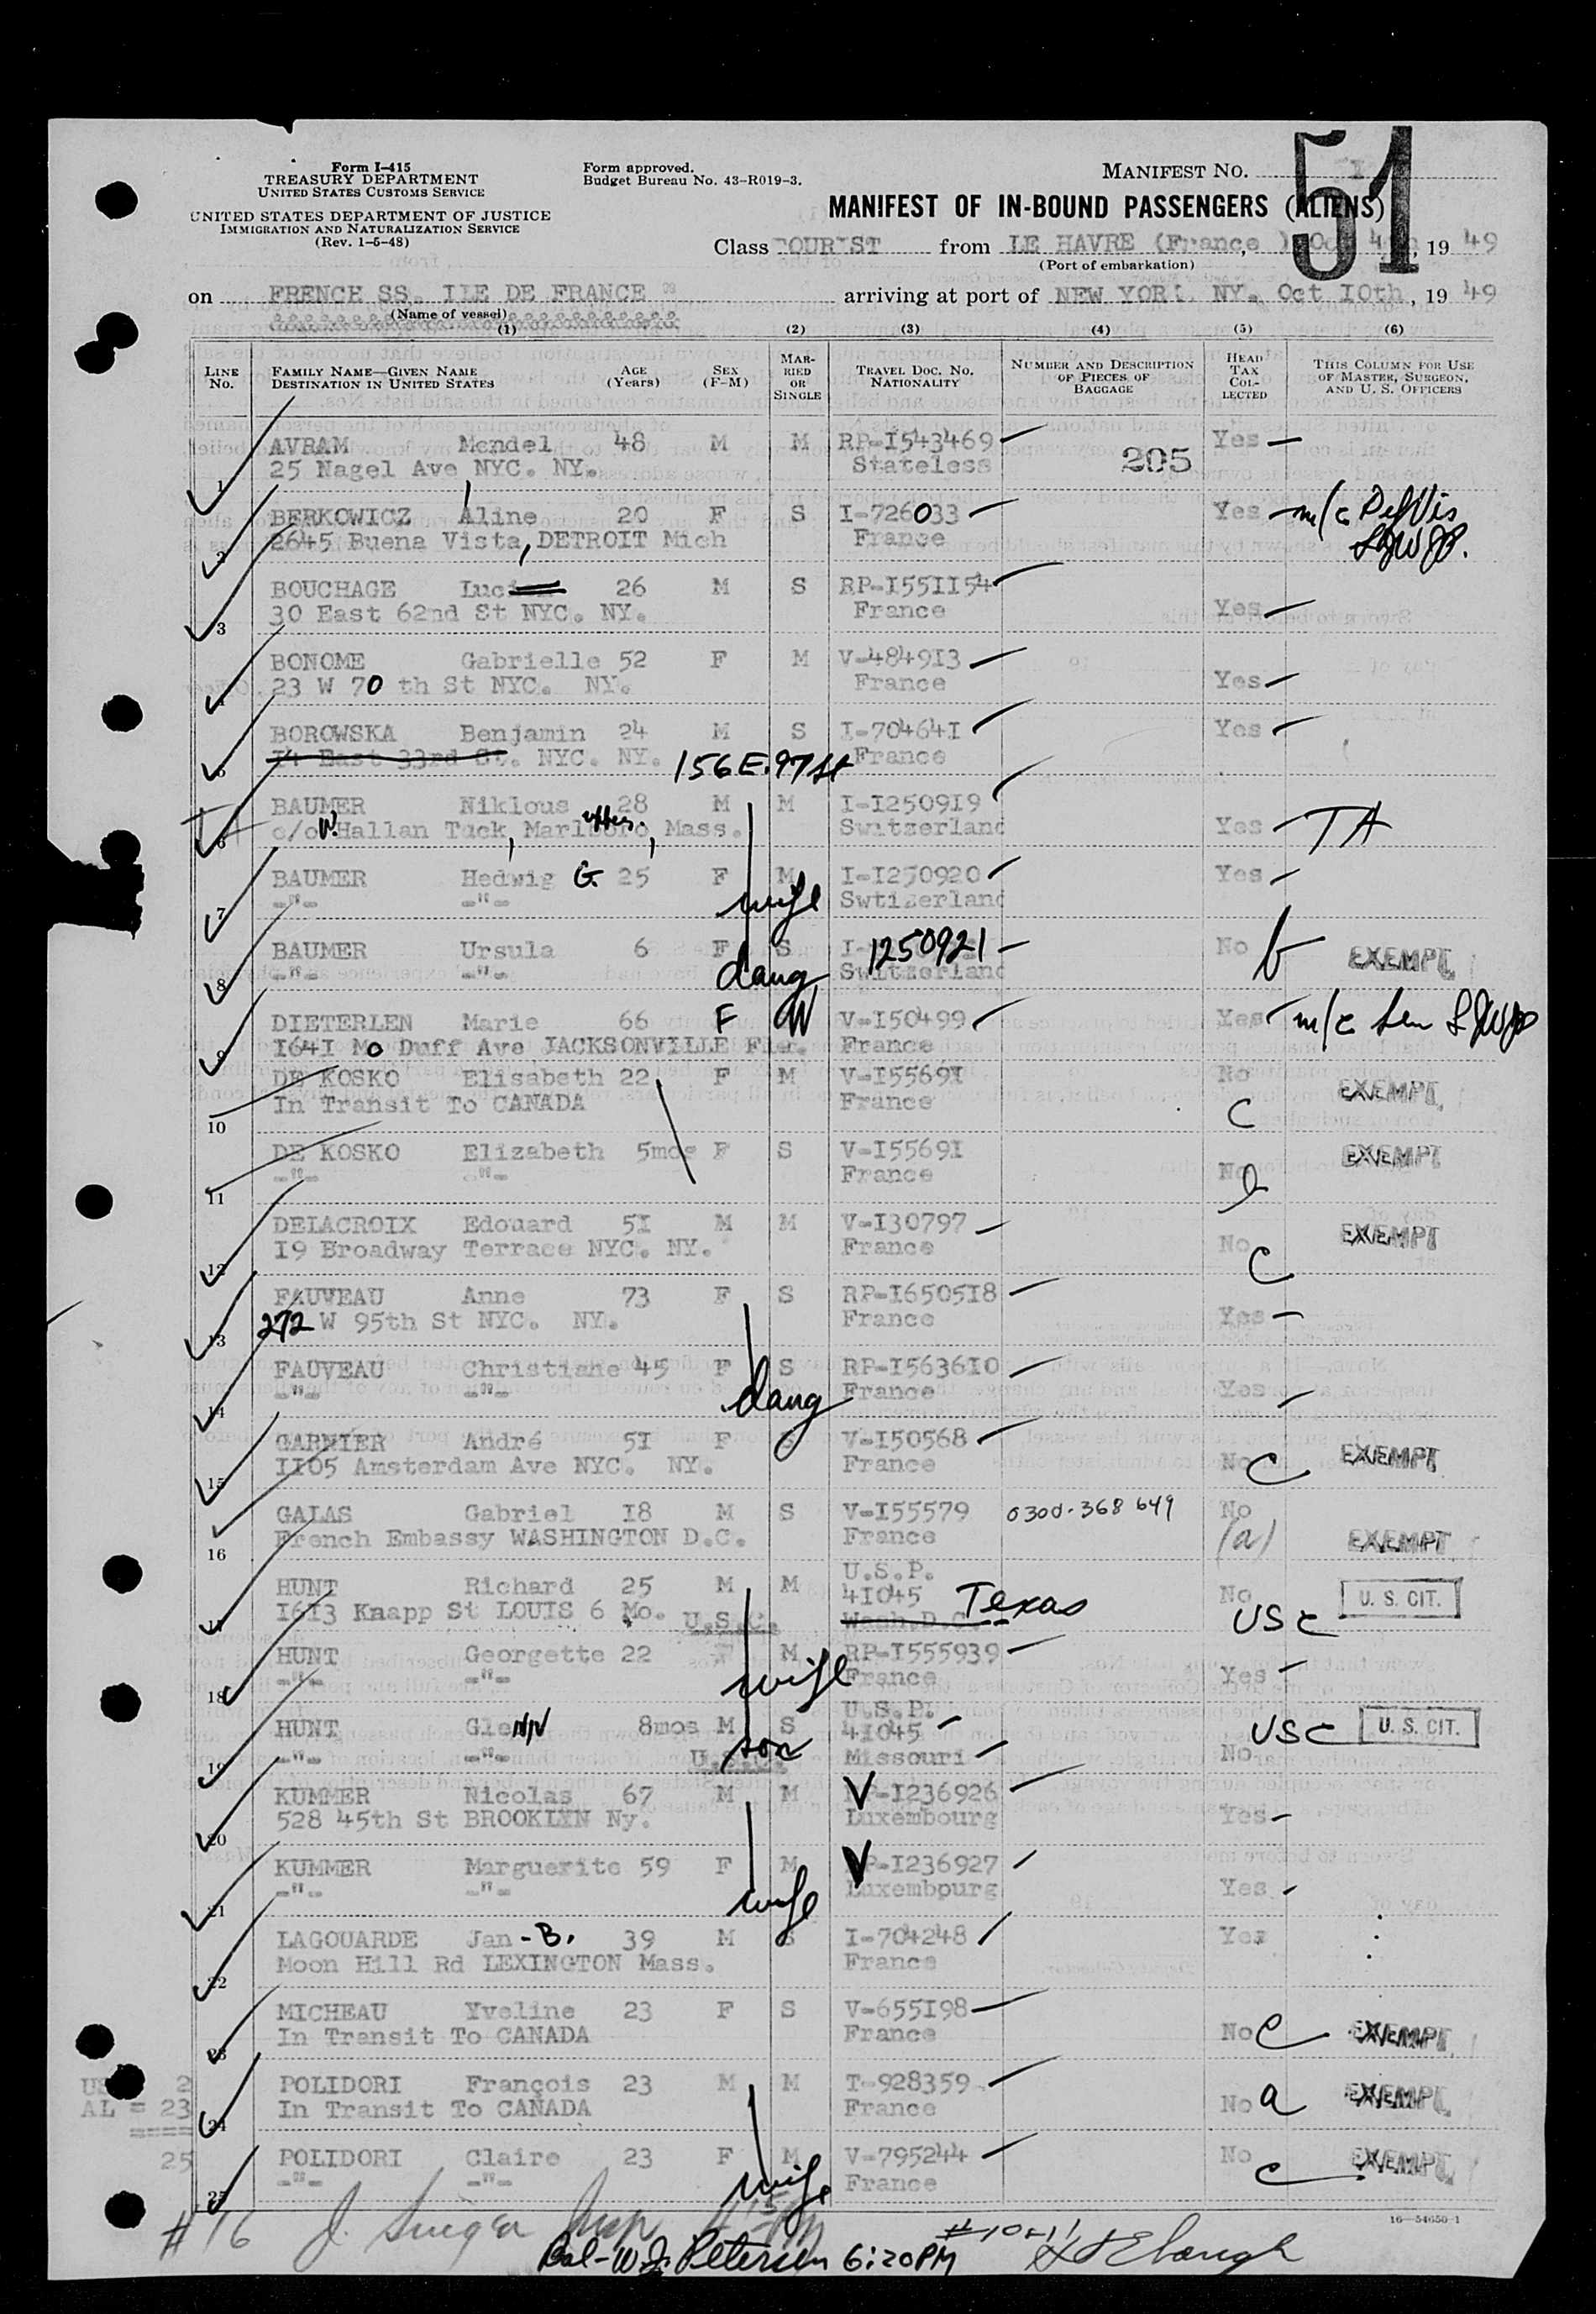 Form I-415
TREASURY DEPARTMENT
UNITED STATES CUSTOMS SERVICE
UNITED STATES DEPARTMENT OF JUSTICE
IMMIGRATION AND NATURALIZATION SERVICE
(Rev. 1-5-48)
Form approved.
Budget Bureau No. 43-R019-3.
MANIFEST NO. 1
51
MANIFEST OF IN-BOUND PASSENGERS (ALIENS)
Class TOURIST from LE HAVRE (France), Oct 4th, 19 49
(Port of embarkation)
on FRENCH SS. ILE DE FRANCE arriving at port of NEW YORK. NY. Oct I0th, 19 49
(Name of vessel)
(1) (2) (3) (4) (5) (6)
LINE No. FAMILY NAME—GIVEN NAME DESTINATION IN UNITED STATES AGE (Years) SEX (F-M) MARRIED OR SINGLE TRAVEL DOC. NO. NATIONALITY NUMBER AND DESCRIPTION OF PIECES OF BAGGAGE HEAD TAX COLLECTED THIS COLUMN FOR USE OF MASTER, SURGEON, AND U. S. OFFICERS
1 AVRAM Mendel 48 M M RP-I543469 Yes
25 Nagel Ave NYC. NY. Stateless 205
2 BERKOWICZ Aline 20 F S I-726033 Yes m/c
2645 Buena Vista, DETROIT Mich France
3 BOUCHAGE Luc 26 M S RP-I55II54
30 East 62nd St NYC. NY. France Yes
4 BONOME Gabrielle 52 F M V-4849I3
23 W 70 th St NYC. NY. France Yes
5 BOROWSKA Benjamin 24 M S I-70464I Yes
I4 East 33rd St. NYC. NY. 156 E. 97 St France
6 BAUMER Niklous 28 M M I-I2509I9
c/o W. Hallan Tuck, Marlboro, Mass. Switzerland Yes TA
7 BAUMER Hedwig G. 25 F M I-I250920 Yes
-"- -"- wife Swtizerland
8 BAUMER Ursula 6 F S I-1250921 No b EXEMPT
-"- -"- daug Switzerland
9 DIETERLEN Marie 66 F W V-I50499 Yes m/c
I64I Mc Duff Ave JACKSONVILLE Fla. France
10 DE KOSKO Elisabeth 22 F M V-I5569I No c EXEMPT
In Transit To CANADA France
11 DE KOSKO Elizabeth 5mos F S V-I5569I No b EXEMPT
-"- -"- France
12 DELACROIX Edouard 5I M M V-I30797 No c EXEMPT
I9 Broadway Terrace NYC. NY. France
13 FAUVEAU Anne 73 F S RP-I6505I8
272 W 95th St NYC. NY. France Yes
14 FAUVEAU Christiane 45 F S RP-I5636I0
-"- -"- daug France Yes
15 GARNIER André 5I F S V-I50568 No c EXEMPT
II05 Amsterdam Ave NYC. NY. France
16 GALAS Gabriel I8 M S V-I55579 0300-368 649 No (a) EXEMPT
French Embassy WASHINGTON D.C. France
17 HUNT Richard 25 M M U.S.P. 4I045 No USC U. S. CIT.
I6I3 Knapp St LOUIS 6 Mo. U.S.C. Wash.D.C. Texas
18 HUNT Georgette 22 M RP-I555939
-"- -"- wife France Yes
19 HUNT GleNN 8mos M S U.S.P. 4I045 USC U. S. CIT.
-"- -"- U.S.C. son Missouri No
20 KUMMER Nicolas 67 M M VP-I236926
528 45th St BROOKLYN Ny. Luxembourg Yes
21 KUMMER Marguerite 59 F M VP-I236927
-"- -"- wife Luxembpurg Yes
22 LAGOUARDE Jan-B. 39 M S I-704248 Yes
Moon Hill Rd LEXINGTON Mass. France
23 MICHEAU Yveline 23 F S V-655I98
In Transit To CANADA France No c EXEMPT
24 POLIDORI François 23 M M T-928359
In Transit To CANADA France No a EXEMPT
25 POLIDORI Claire 23 F M V-795244 No c EXEMPT
-"- -"- wife France
2
AL = 23
====
25
16—54650-1
# 16 J.
#10-11
Bal-W.J. Petersen 6:20PM